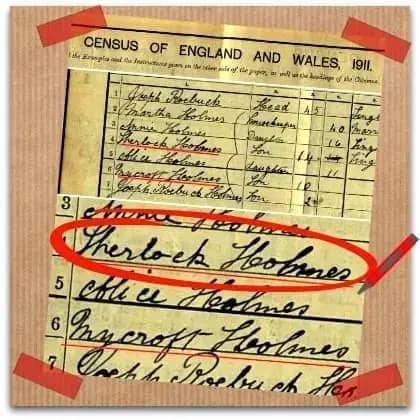 CENSUS OF ENGLAND AND WALES, 1911.
the Examples and the Instructions given on the other side of the paper, as well as the headings of the Columns
1 Joseph Roebuck Head 45
2 Martha Holmes Housekeeper 40
3 Annie Holmes Daughter 16
4 Sherlock Holmes Son 14
5 Alice Holmes daughter 11
6 Mycroft Holmes Son 10
7 Joseph Roebuck Holmes Son
3 Annie Holmes
Sherlock Holmes
5 Alice Holmes
6 Mycroft Holmes
7 Joseph Roebuck